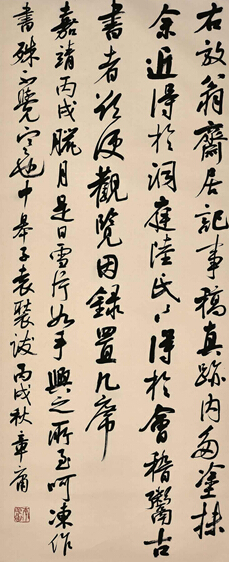 右放翁齋居記事稿真跡内多塗抹
余近得於洞庭陸氏々得於會稽鬻古
書者欲便觀覽因錄置几席
嘉靖丙戌臘月是日雪片如手興之所至呵凍作
書殊不覺寒也中皋子袁裝跋丙戌秋章甫